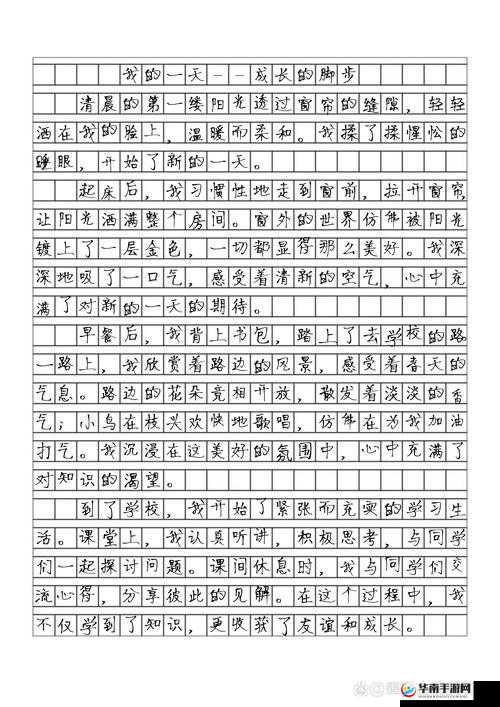 我的一天--成长的脚步
清晨的第一缕阳光透过窗帘的缝隙，轻轻
洒在我的脸上，温暖而柔和。我揉了揉惺忪的
睡眼，开始了新的一天。
起床后，我习惯性地走到窗前，拉开窗帘，
让阳光洒满整个房间。窗外的世界仿佛被阳光
镀上了一层金色，一切都显得那么美好。我深
深地吸了一口气，感受着清新的空气，心中充
满了对新的一天的期待。
早餐后，我背上书包，踏上了去学校的路
一路上，我欣赏着路边的风景，感受着春天的
气息。路边的花朵竞相开放，散发着淡淡的香
气；小鸟在枝头欢快地歌唱，仿佛在为我加油
打气。我沉浸在这美好的氛围中，心中充满了
对知识的渴望。
到了学校，我开始了紧张而充实的学习生
活。课堂上，我认真听讲，积极思考，与同学
们一起探讨问题。课间休息时，我与同学们交
流心得，分享彼此的见解。在这个过程中，我
不仅学到了知识，更收获了友谊和成长。
华南手游网